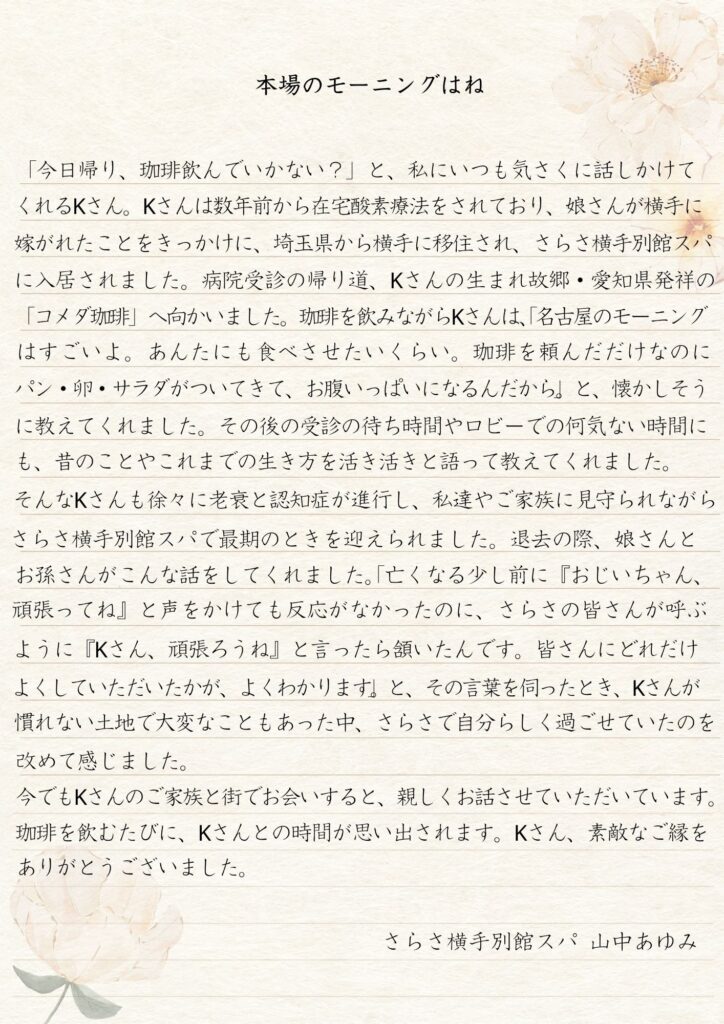 本場のモーニングはね
「今日帰り、珈琲飲んでいかない？」と、私にいつも気さくに話しかけて
くれるKさん。Kさんは数年前から在宅酸素療法をされており、娘さんが横手に
嫁がれたことをきっかけに、埼玉県から横手に移住され、さらさ横手別館スパ
に入居されました。病院受診の帰り道、Kさんの生まれ故郷・愛知県発祥の
「コメダ珈琲」へ向かいました。珈琲を飲みながらKさんは、「名古屋のモーニング
はすごいよ。あんたにも食べさせたいくらい。珈琲を頼んだだけなのに
パン・卵・サラダがついてきて、お腹いっぱいになるんだから」と、懐かしそう
に教えてくれました。その後の受診の待ち時間やロビーでの何気ない時間に
も、昔のことやこれまでの生き方を活き活きと語って教えてくれました。
そんなKさんも徐々に老衰と認知症が進行し、私達やご家族に見守られながら
さらさ横手別館スパで最期のときを迎えられました。退去の際、娘さんと
お孫さんがこんな話をしてくれました。「亡くなる少し前に『おじいちゃん、
頑張ってね』と声をかけても反応がなかったのに、さらさの皆さんが呼ぶ
ように『Kさん、頑張ろうね』と言ったら頷いたんです。皆さんにどれだけ
よくしていただいたかが、よくわかります」と、その言葉を伺ったとき、Kさんが
慣れない土地で大変なこともあった中、さらさで自分らしく過ごせていたのを
改めて感じました。
今でもKさんのご家族と街でお会いすると、親しくお話させていただいています。
珈琲を飲むたびに、Kさんとの時間が思い出されます。Kさん、素敵なご縁を
ありがとうございました。
さらさ横手別館スパ 山中あゆみ